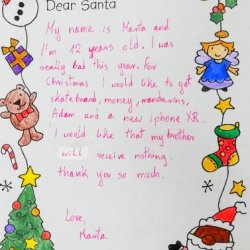 Dear Santa
My name is Marta and
I'm 12 years old. I was
really bad this year. For
Christmas I would like to get
skateboard, money, mandarins,
Adam and a new iphone XR.
I would like that my brother
will receive nothing.
thank you so much.
Love,
Marta